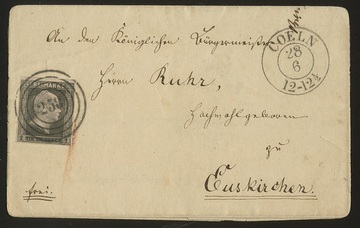 An den Königlichen Bürgermeister
COELN
28
6
12-12½
Herrn Ruhr,
Hochwohlgeboren
zu
Euskirchen.
frei.